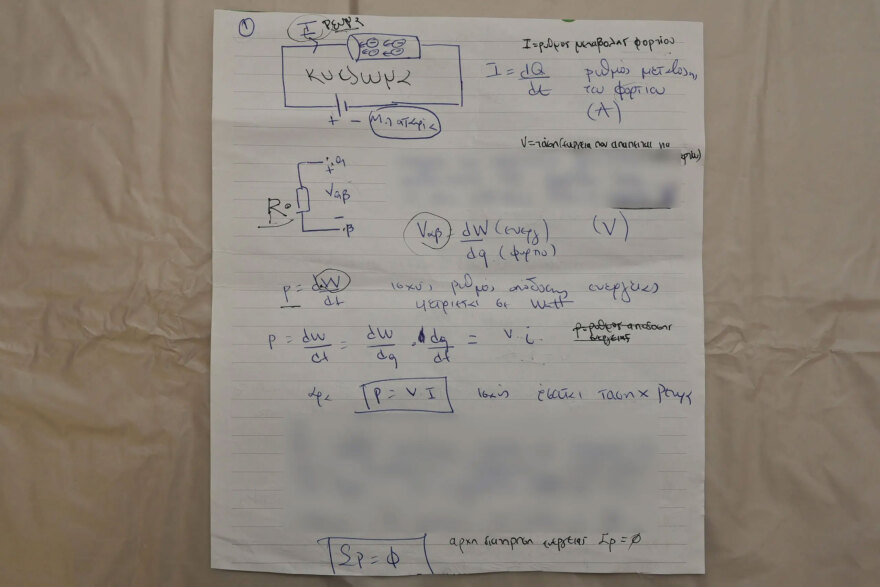 1
I ρευμα
κυκλωμα
+ - Μπαταρια
I = ρυθμος μεταβολης φορτιου
I = dQ/dt ρυθμός μεταβολης
του φορτιου
(A)
V = ταση (ενεργεια που απαιτειται για
+ α
R Vαβ
- β
Vαβ = dW (ενεργ) / dq (φορτιο) (V)
P = dW/dt ισχυς ρυθμος αποδοσης ενεργειας
μετριεται σε Watt
P = dW/dt = dW/dq · dq/dt = v · i
P = ρυθμος αποδοσης
ενεργειας
αρα P = V · I ισχύς ταση x ρευμα
Σp = 0
αρχη διατηρηση ενεργειας Σp = 0